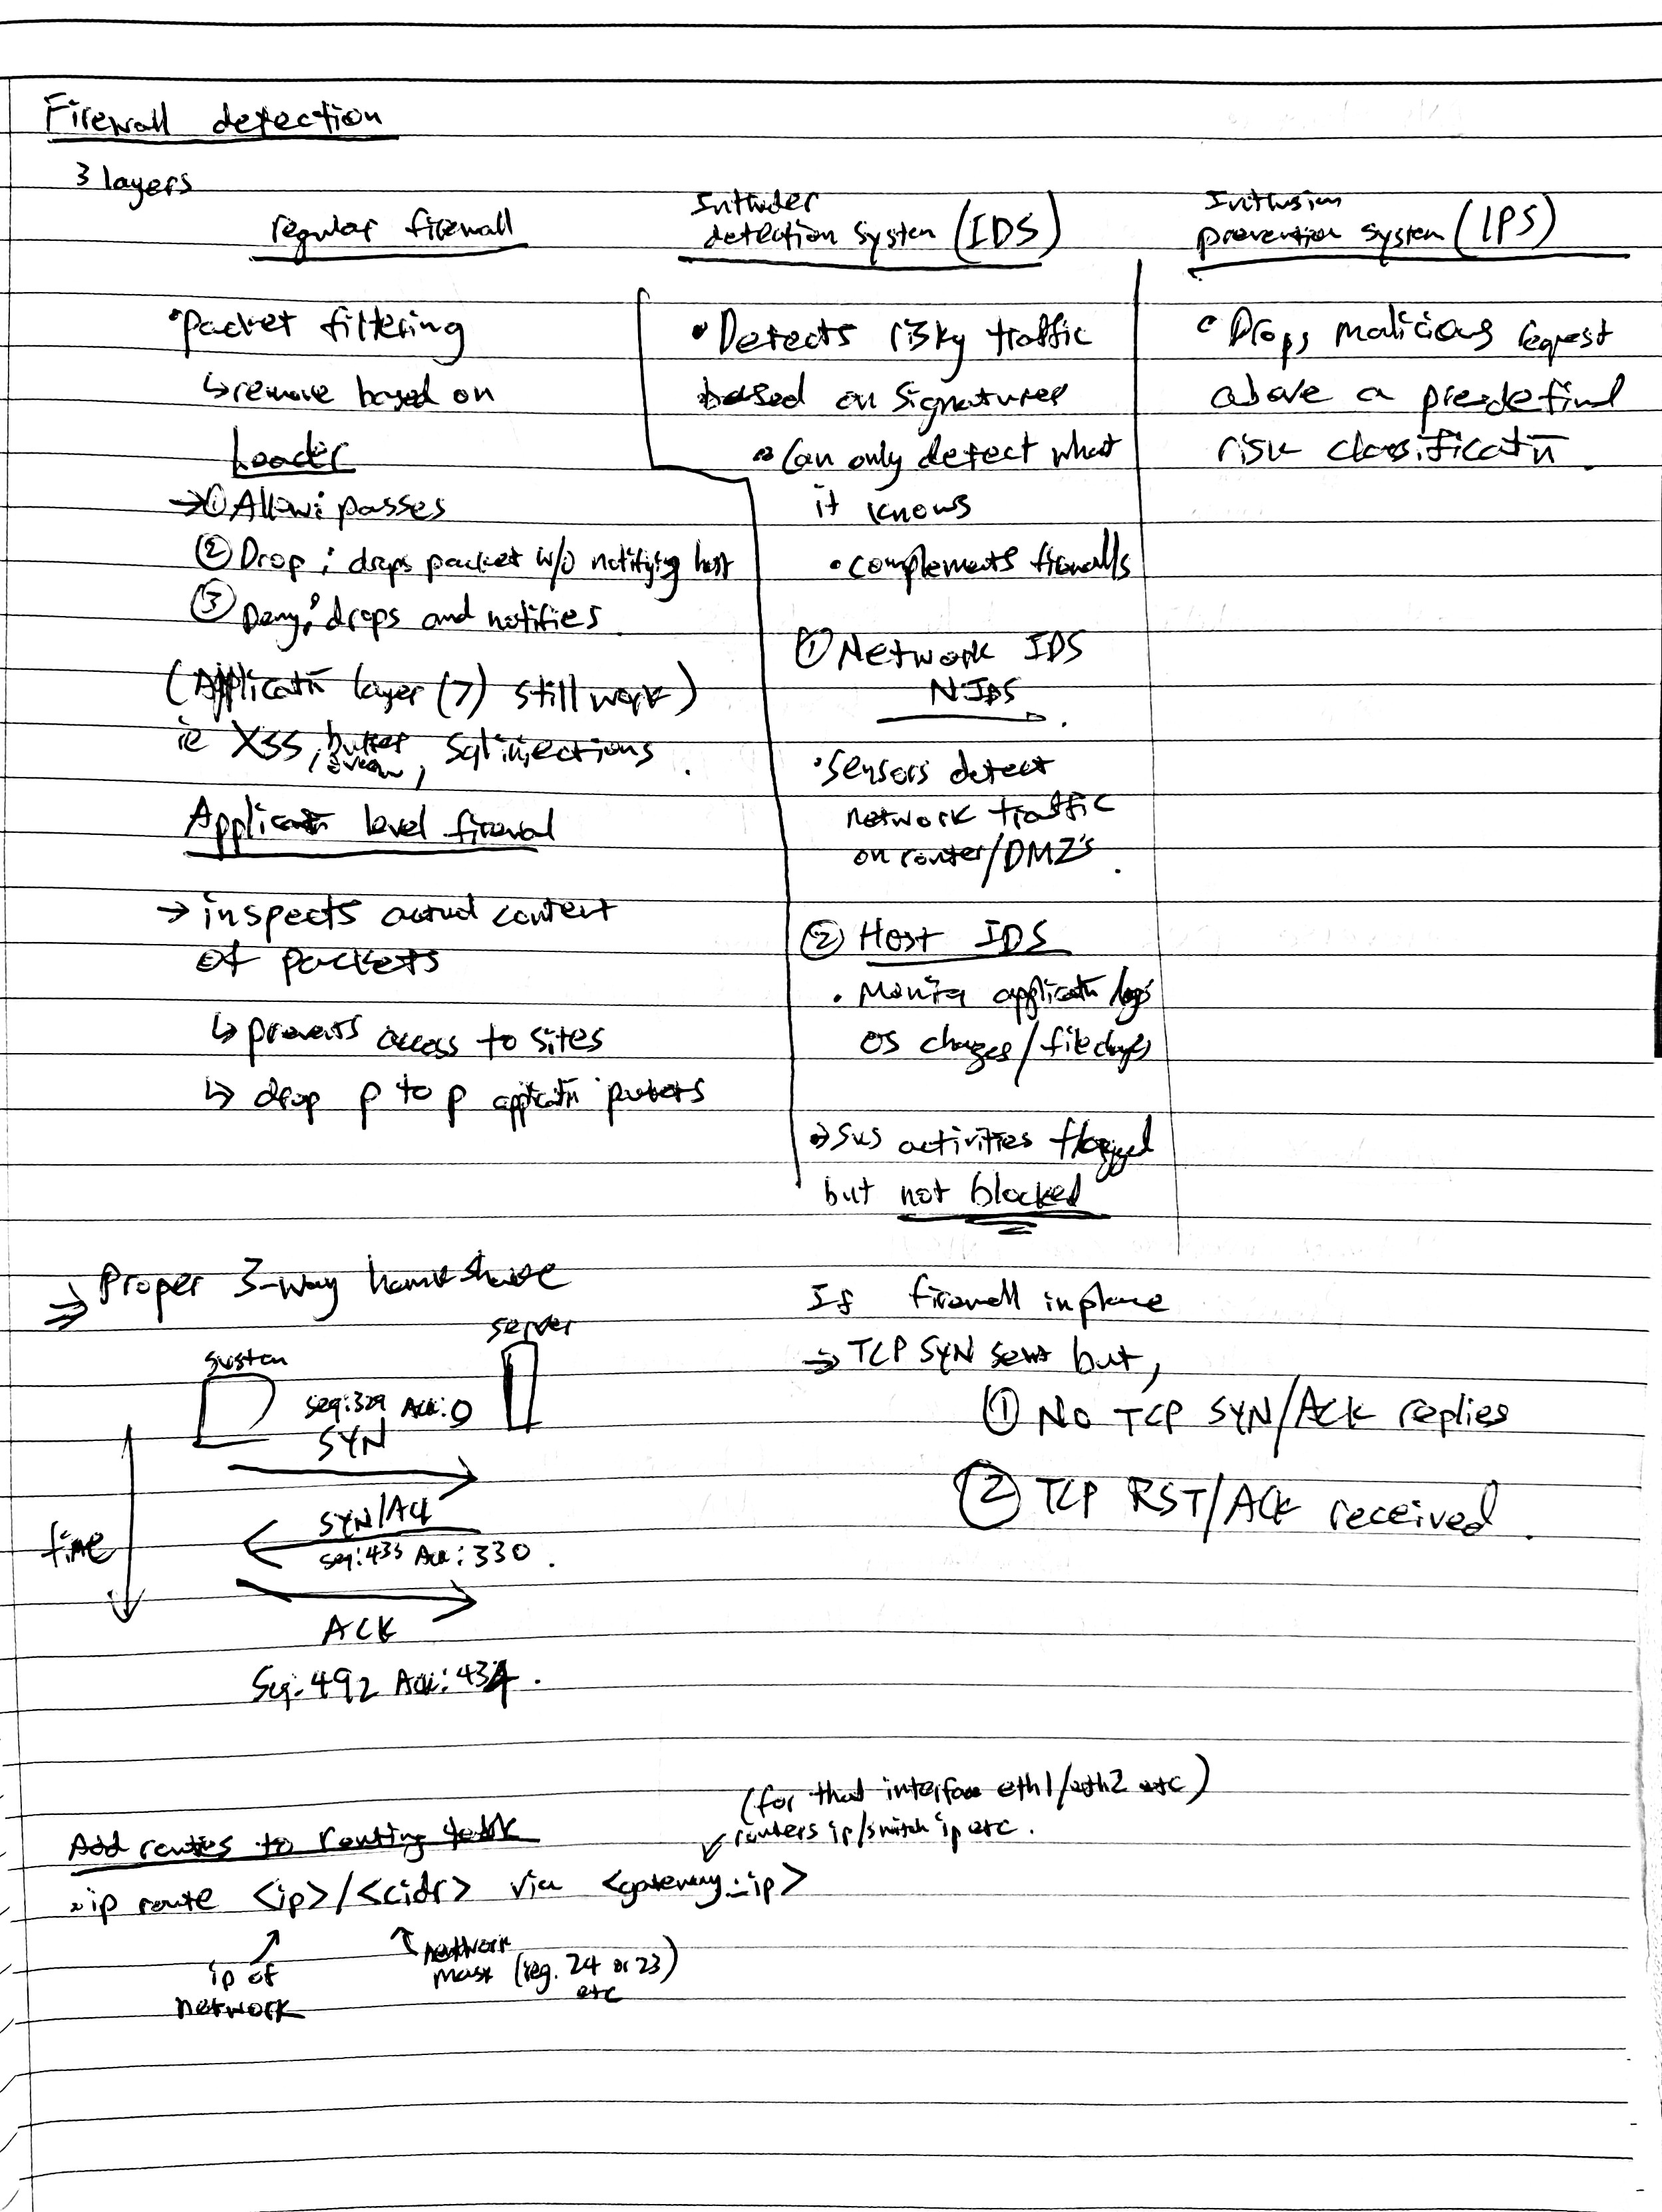 Firewall detection
3 layers
regular firewall
• packet filtering
↳ remove based on
header
→ ① Allow: passes
② Drop: drops packet w/o notifying host
③ Deny: drops and notifies.
(Applicatn layer (7) still work)
ie XSS, buffer overflow, Sql injections.
Applicatn level firewall
→ inspects actual content
of packets
↳ prevents access to sites
↳ drop p to p applicatn packets
Intruder
detection system (IDS)
• Detects risky traffic
based on signatures
• Can only detect what
it knows
• complements firewalls
① Network IDS
NIDS
• sensors detect
network traffic
on router/DMZ's.
② Host IDS
• Monitor applicatn logs
OS changes/file changes
→ sus activities flagged
but not blocked
Intrusion
prevention system (IPS)
• Drops malicious request
above a predefined
risk classificatn.
⇒ Proper 3-way handshake
system
server
Seq:329 Ack:0
SYN
SYN/Ack
Seq:433 Ack:330.
time
ACK
Seq:492 Ack:434.
If firewall in place
→ TCP SYN sent but,
① No TCP SYN/Ack replies
② TCP RST/Ack received.
(for that interface eth1/eth2 etc)
routers ip/switch ip etc.
Add routes to routing table
• ip route <ip>/<cidr> via <gateway_ip>
ip of
network
network
mask (eg. 24 or 23)
etc